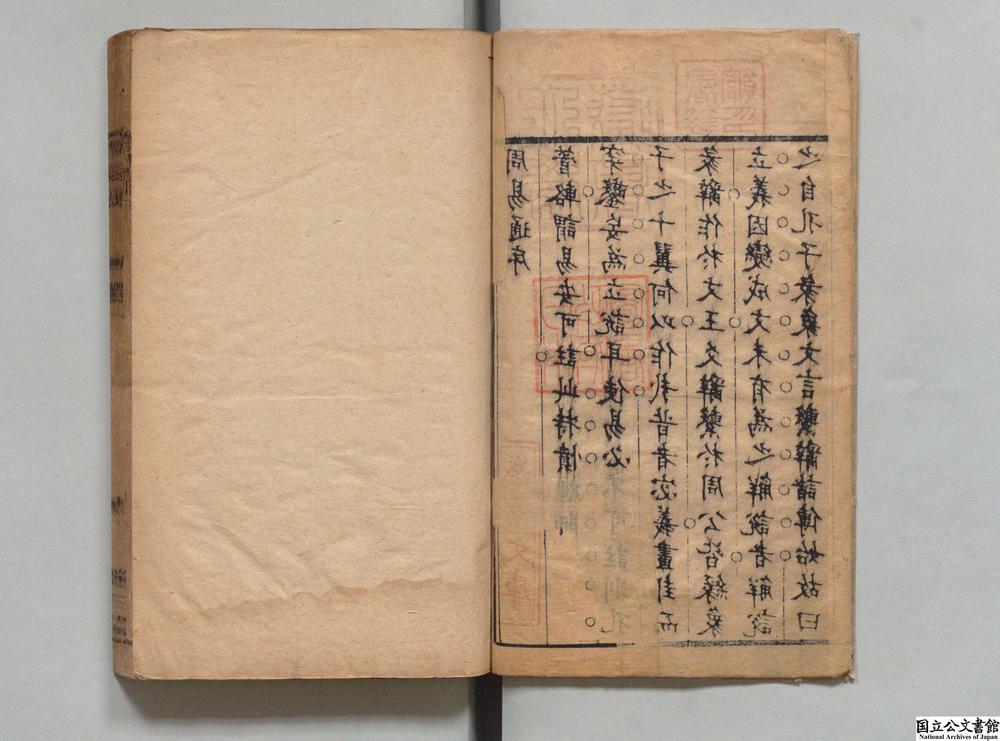 周易通序
管輅謂易安可註此特憤經師
穿鑿妄為立說耳使易必不可註則孔
子之十翼何以作昔者宓羲畫卦而
彖辭作於文王爻辭繫於周公皆緣象
立義因變成文未有為之解說者解說
之自孔子彖象文言繫辭諸傳始故曰
国立公文書館
National Archives of Japan